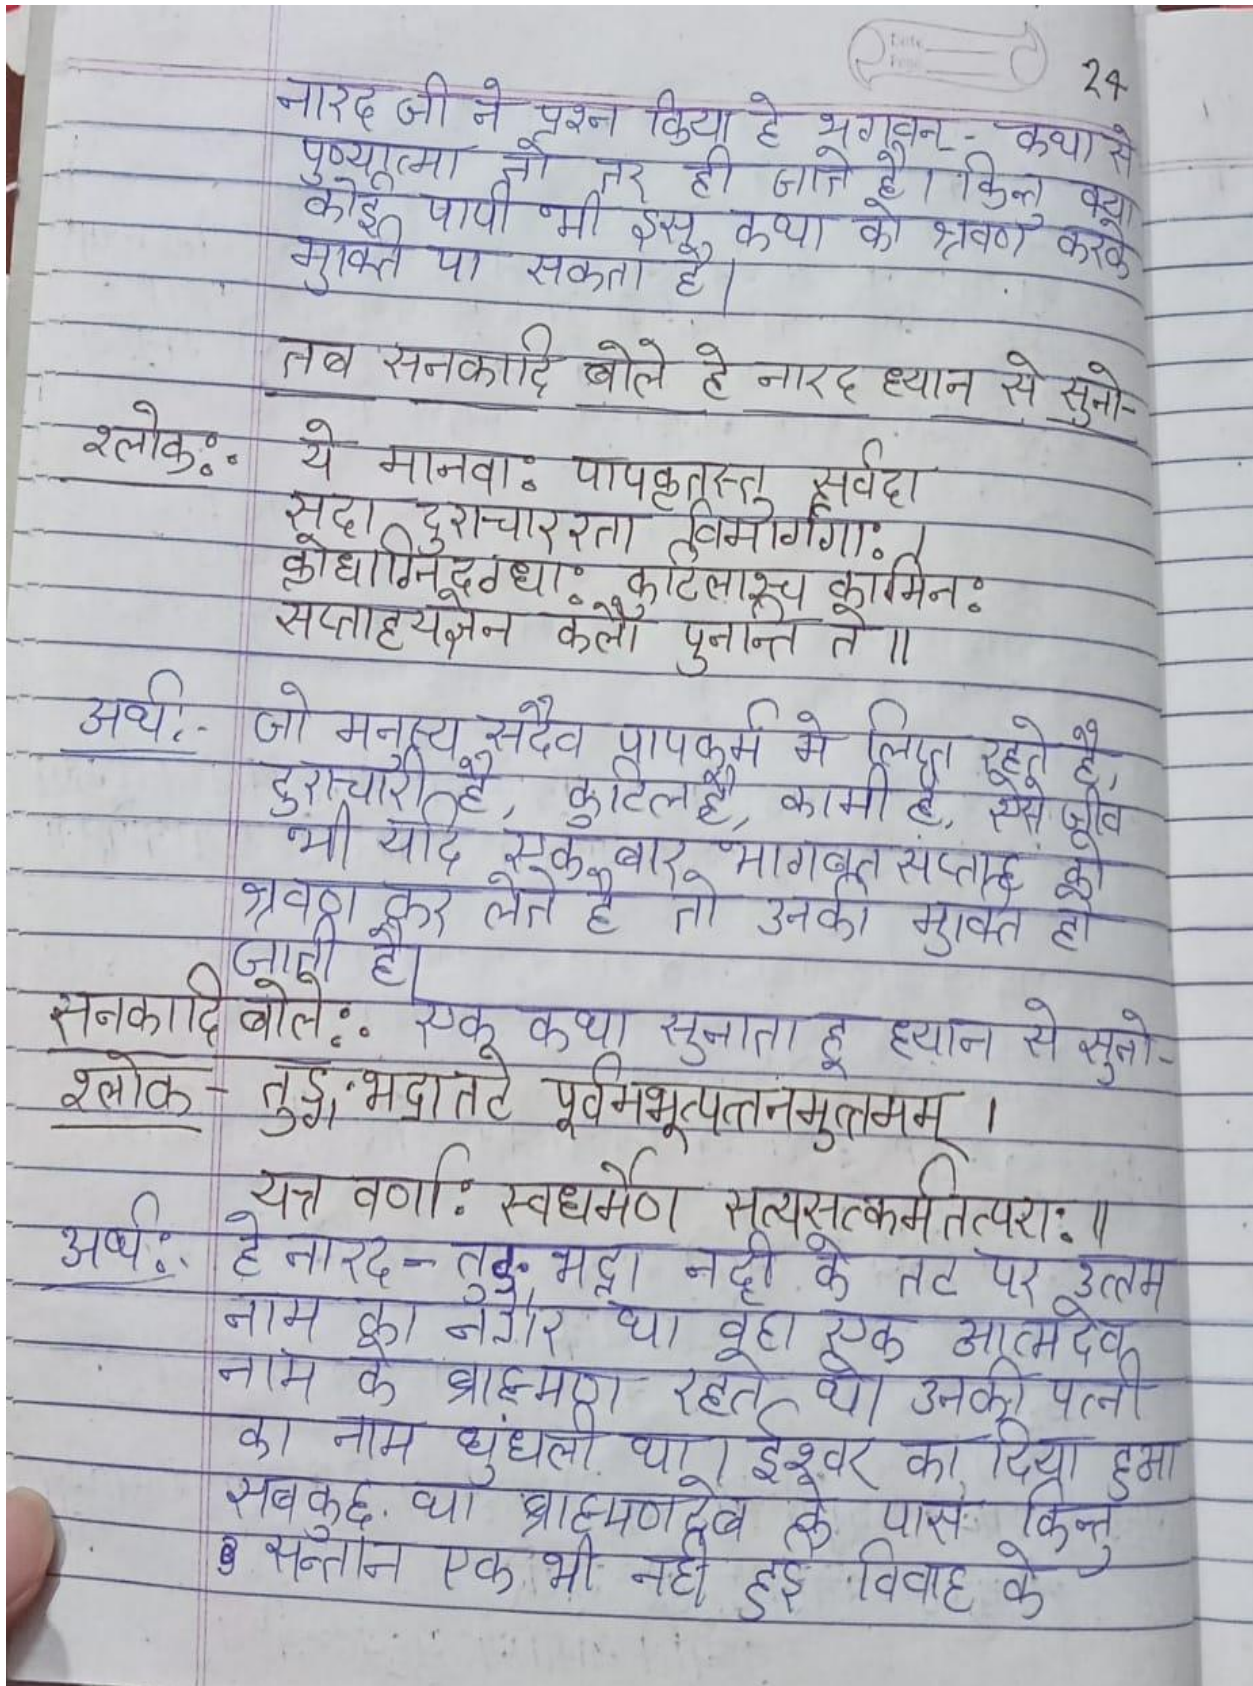 Date
Page
24
नारद जी ने प्रश्न किया हे भगवन - कथा से
पुण्यात्मा तो तर ही जाते है। किन्तु क्या
कोई पापी भी इस कथा को श्रवण करके
मुक्ति पा सकता है।
तब सनकादि बोले हे नारद ध्यान से सुनो-
श्लोक:. ये मानवाः पापकृतस्तु सर्वदा
सदा दुराचाररता विमार्गगाः ।
क्रोधाग्निदग्धाः कुटिलाश्च कामिनः
सप्ताहयज्ञेन कलौ पुनन्ति ते ॥
अर्थ:- जो मनुष्य सदैव पापकर्म मे लिप्त रहते है,
दुराचारी है, कुटिल है, कामी है, ऐसे जीव
भी यदि एक बार भागवत सप्ताह को
श्रवण कर लेते है तो उनकी मुक्ति हो
जाती है।
सनकादि बोले:. एक कथा सुनाता हू ध्यान से सुनो-
श्लोक - तुङ्गभद्रातटे पूर्वमभूत्पत्तनमुत्तमम् ।
यत्र वर्णाः स्वधर्मेण सत्यसत्कर्मतत्पराः ॥
अर्थ:. हे नारद - तुङ्गभद्रा नदी के तट पर उत्तम
नाम का नगर था वहा एक आत्मदेव
नाम के ब्राह्मण रहते थे। उनकी पत्नी
का नाम धुंधली था। ईश्वर का दिया हुआ
सबकुछ था ब्राह्मणदेव के पास किन्तु
सन्तान एक भी नही हुई विवाह के